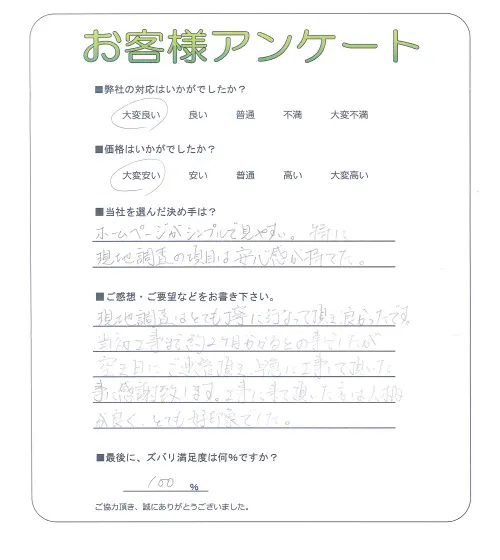 お客様アンケート
■弊社の対応はいかがでしたか？
大変良い 良い 普通 不満 大変不満
■価格はいかがでしたか？
大変安い 安い 普通 高い 大変高い
■当社を選んだ決め手は？
ホームページがシンプルで見やすい。特に
現地調査の項目は安心感が持てた。
■ご感想・ご要望などをお書き下さい。
現地調査はとても丁寧に行なって頂き良かったです
当初工事まで約2ヶ月かかるとの事でしたが
日にご連絡頂き 工事して頂いた
事に感謝致します。工事に来て頂いた方は人柄
が良く、とても好印象でした。
■最後に、ズバリ満足度は何％ですか？
100 %
ご協力頂き、誠にありがとうございました。